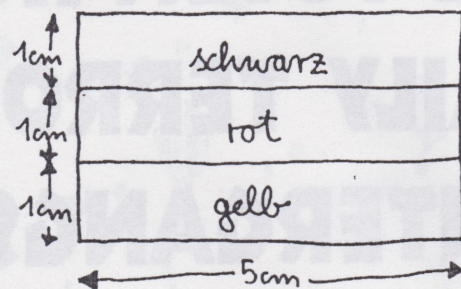 1cm schwarz
1cm rot
1cm gelb
5cm